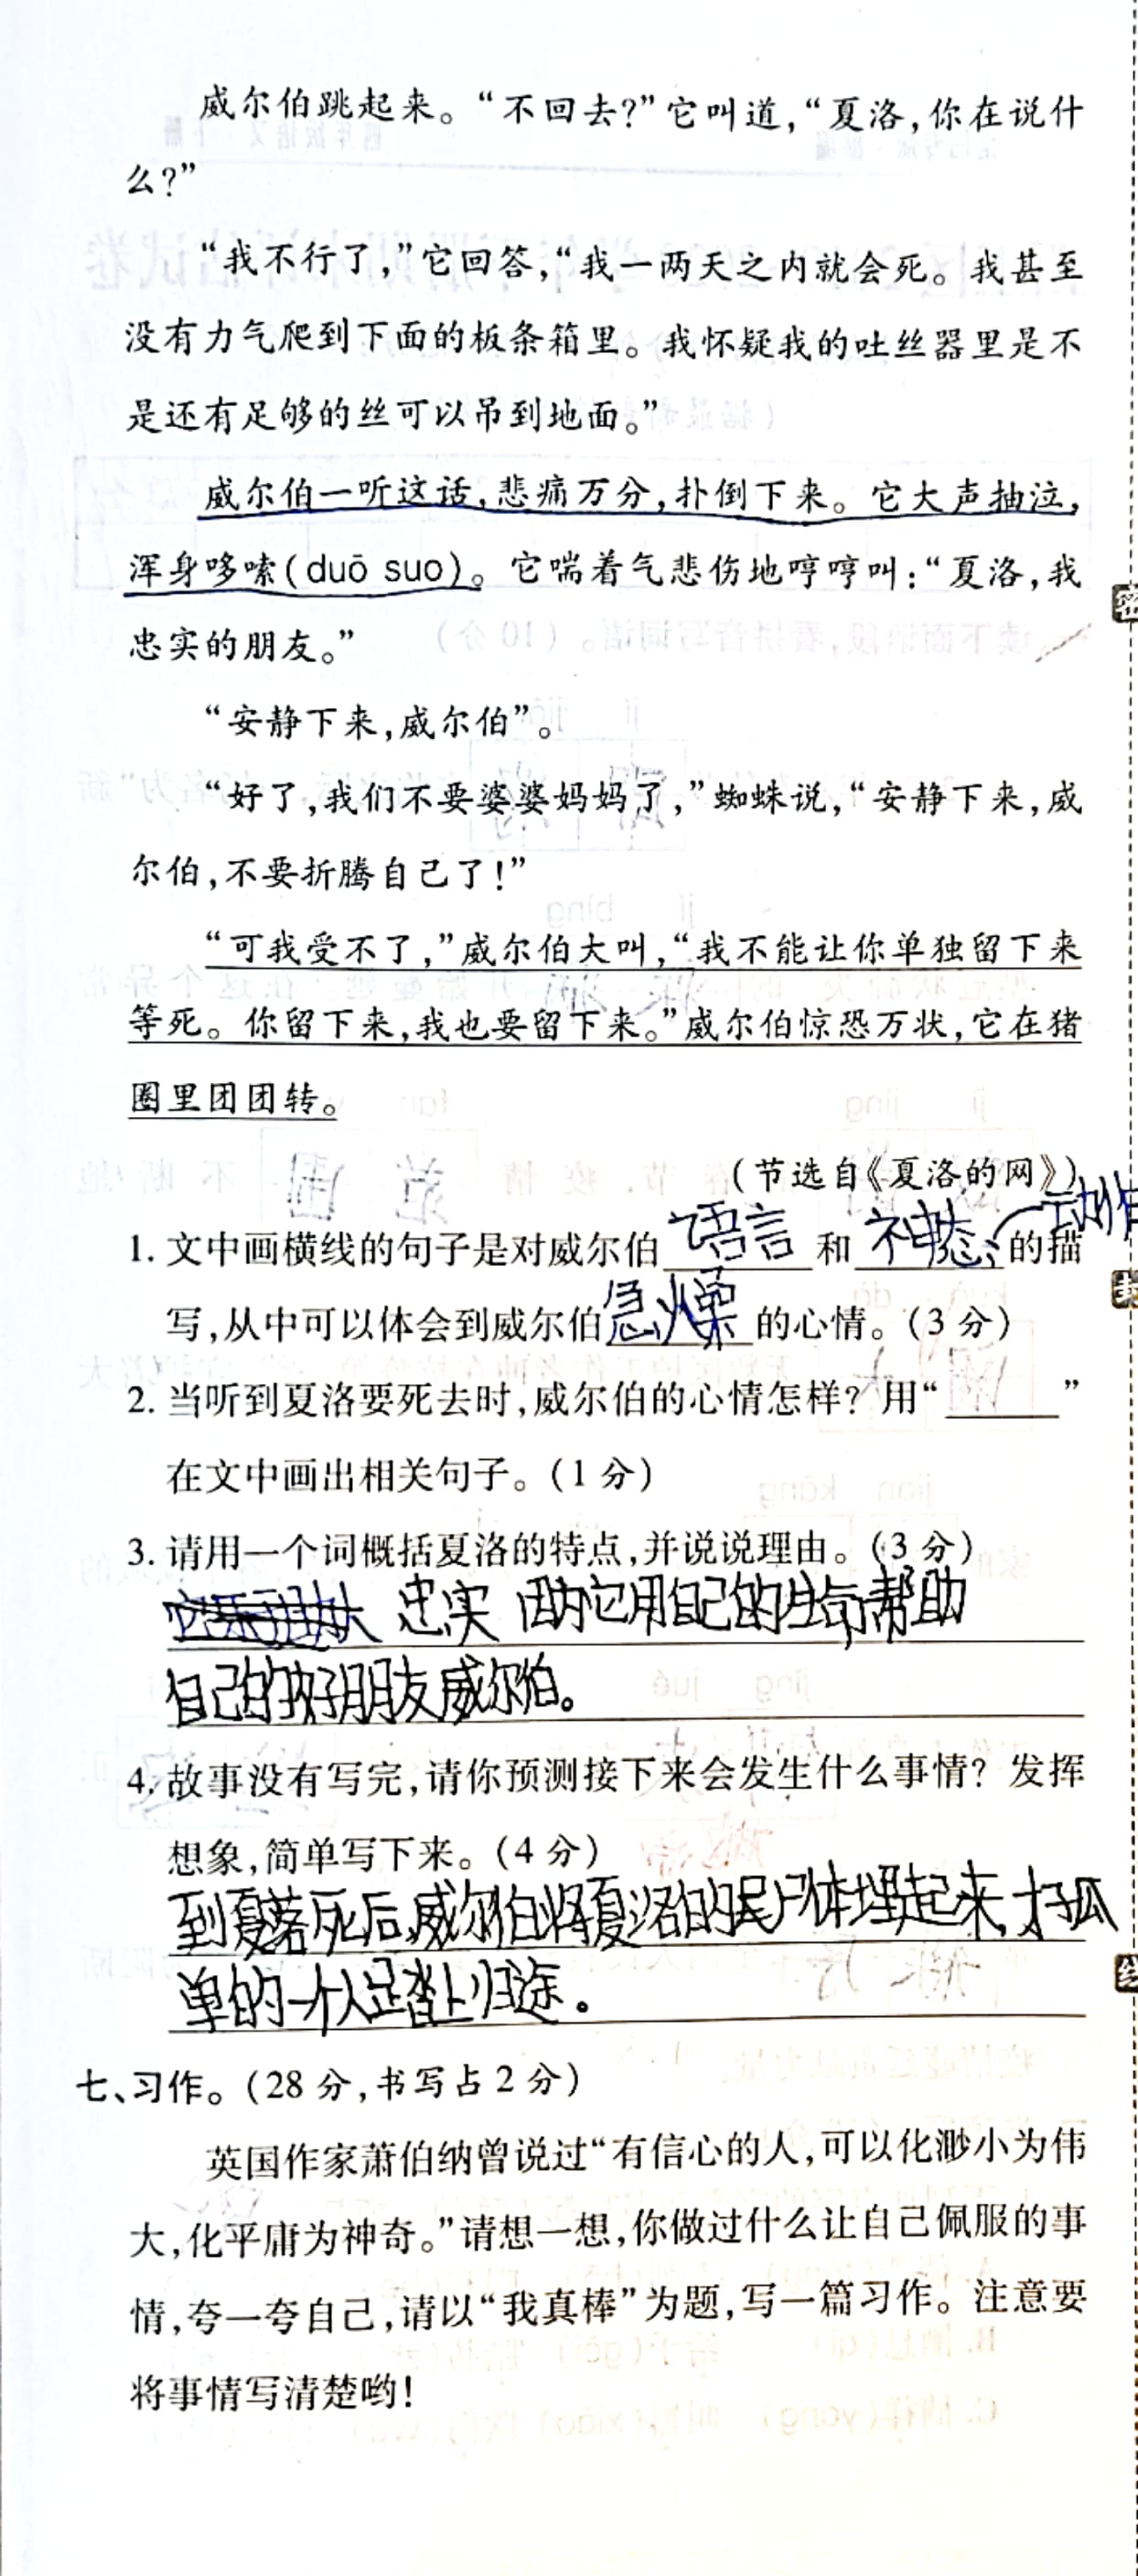 威尔伯跳起来。“不回去?”它叫道,“夏洛,你在说什
么?”
“我不行了,”它回答,“我一两天之内就会死。我甚至
没有力气爬到下面的板条箱里。我怀疑我的吐丝器里是不
是还有足够的丝可以吊到地面。”
威尔伯一听这话,悲痛万分,扑倒下来。它大声抽泣,
浑身哆嗦(duō suo)。它喘着气悲伤地哼哼叫:“夏洛,我
忠实的朋友。”
“安静下来,威尔伯”。
“好了,我们不要婆婆妈妈了,”蜘蛛说,“安静下来,威
尔伯,不要折腾自己了!”
“可我受不了,”威尔伯大叫,“我不能让你单独留下来
等死。你留下来,我也要留下来。”威尔伯惊恐万状,它在猪
圈里团团转。
(节选自《夏洛的网》)
动作
1. 文中画横线的句子是对威尔伯 语言 和 神态 的描
写,从中可以体会到威尔伯 急燥 的心情。(3 分)
2. 当听到夏洛要死去时,威尔伯的心情怎样? 用“______”
在文中画出相关句子。(1 分)
3. 请用一个词概括夏洛的特点,并说说理由。(3 分)
忠实 因为它用自己的生命帮助
自己的好朋友威尔伯。
4. 故事没有写完,请你预测接下来会发生什么事情? 发挥
想象,简单写下来。(4 分)
到夏落死后,威尔伯将夏洛的尸体埋起来,才孤
单的一个人踏上归途。
七、习作。(28 分,书写占 2 分)
英国作家萧伯纳曾说过“有信心的人,可以化渺小为伟
大,化平庸为神奇。”请想一想,你做过什么让自己佩服的事
情,夸一夸自己,请以“我真棒”为题,写一篇习作。注意要
将事情写清楚哟!
密
封